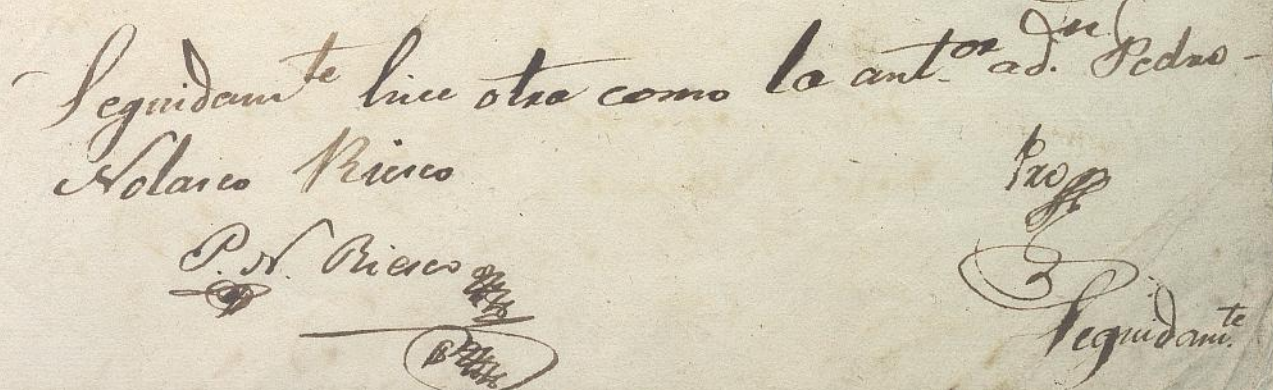 Seguidam.te hice otra como la ant.or a d.n Pedro
Nolasco Riesco
P. N. Riesco
Seguidam.te